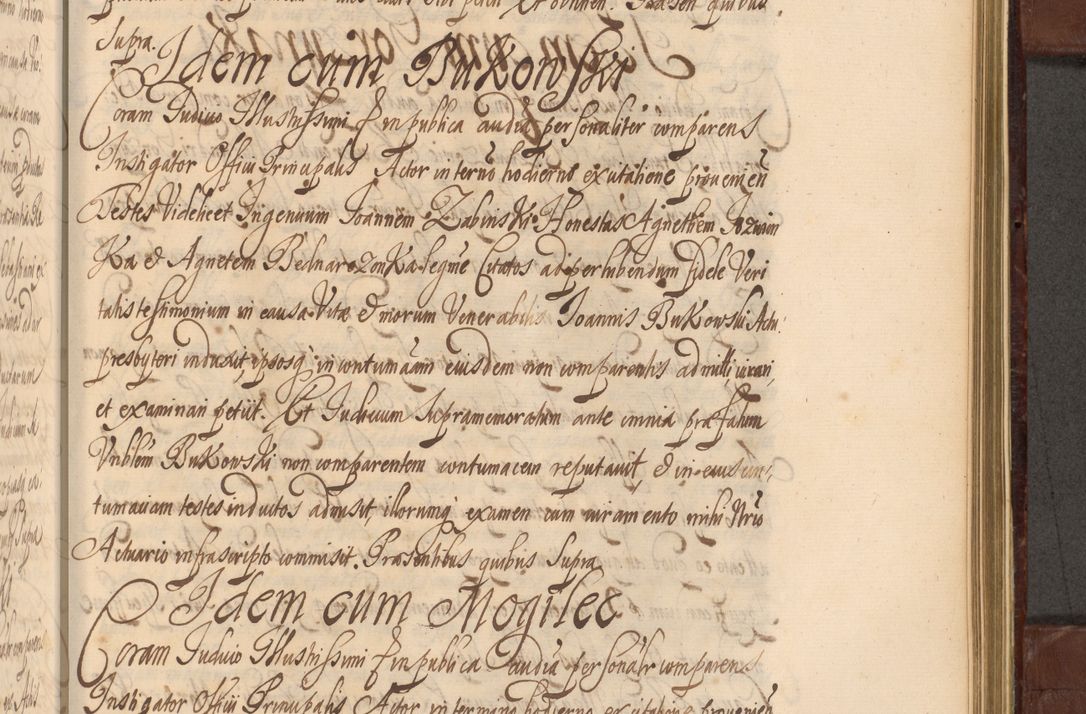 Supra.
Idem cum Bukowski
Coram Iudicio Illustrissimi & in publica audia personaliter comparens
Instigator Officii Principalis Actor in termo hodierno ex citatione provenien
Testes Videlicet Ingenuum Joannem Zabinski Honestas Agnethem Jozwin
Ka & Agnetem Bednarszonka legme Citatos ad perhibendum fidele Veri
tatis testimonium in causa Vitæ & morum Venerabilis Joannis Bukowski Actu
presbyteri induxit, ipsosq in contumaām eiusdem non comparentis admitti, iurari,
et examinari petiit. Et Iudicium Supramemoratum ante omnia præfatum
Vnblem Bukowski non comparentem contumacem reputavit, & in eius con
tumaciam testes inductos admisit, illorumq examen cum iuramento mihi Nrio
Actuario infrascripto commisit. Præsentibus quibus Supra
Idem cum Mogilec
Coram Iudicio Illustrissimi & in publica audia personalr comparens
Instigator Officii Principalis Actor in termino hodierno ex citatione provenien